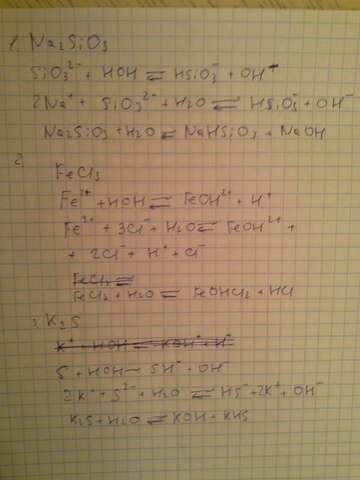 1. Na2SiO3
SiO3²⁻ + HOH ⇌ HSiO3⁻ + OH⁻
2Na⁺ + SiO3²⁻ + H2O ⇌ HSiO3⁻ + OH⁻
Na2SiO3 + H2O ⇌ NaHSiO3 + NaOH
2.
FeCl3
Fe³⁺ + HOH ⇌ FeOH²⁺ + H⁺
Fe³⁺ + 3Cl⁻ + H2O ⇌ FeOH²⁺ +
+ 2Cl⁻ + H⁺ + Cl⁻
FeCl3 ⇌
FeCl3 + H2O ⇌ FeOHCl2 + HCl
3. K2S
K⁺ + HOH ⇌ KOH + H⁺
S + HOH — SH⁻ + OH⁻
2K⁺ + S²⁻ + H2O ⇌ HS⁻ + 2K⁺ + OH⁻
K2S + H2O ⇌ KOH + KHS